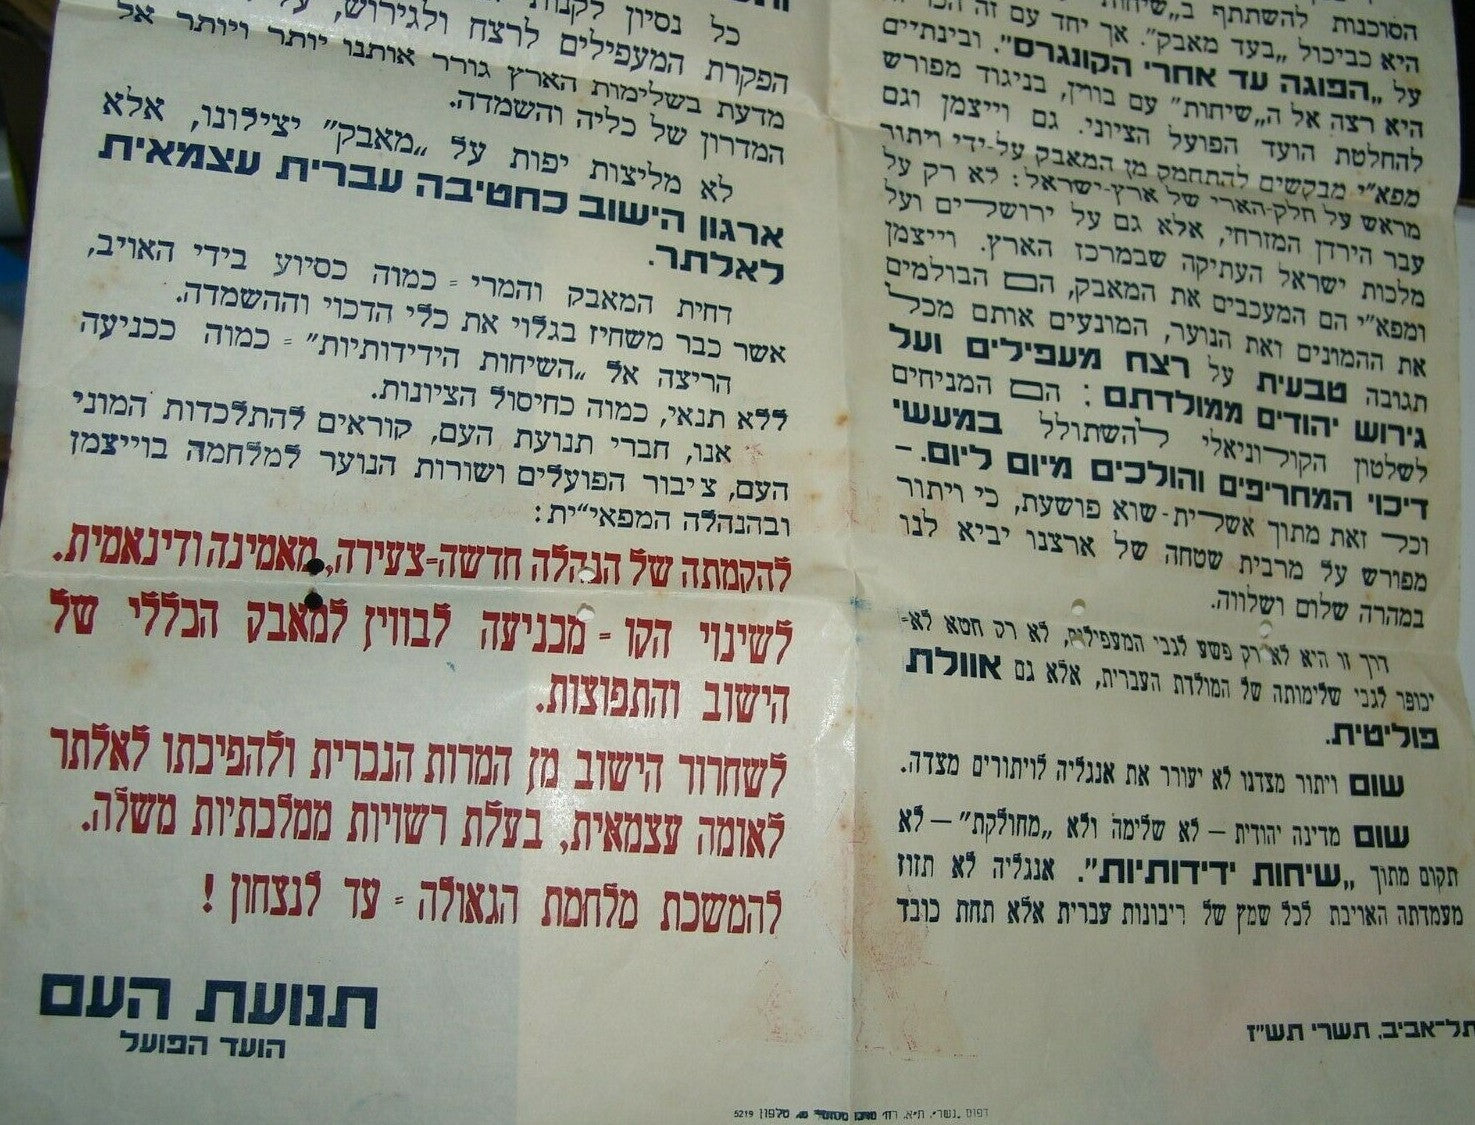 הסוכנות להשתתף ב„שיחות
היא כביכול „בעד מאבק". אך יחד עם זה
על „הפוגה עד אחרי הקונגרס". ובינתיים
היא רצה אל ה„שיחות" עם בווין, בניגוד מפורש
להחלטת הועד הפועל הציוני. גם וייצמן וגם
מפא"י מבקשים להתחמק מן המאבק על-ידי ויתור
מראש על חלק-הארי של ארץ-ישראל: לא רק על
עבר הירדן המזרחי, אלא גם על ירושלים ועל
מלכות ישראל העתיקה שבמרכז הארץ. וייצמן
ומפא"י הם המעכבים את המאבק, הם הבולמים
את ההמונים ואת הנוער, המונעים אותם מכל
תגובה טבעית על רצח מעפילים ועל
גירוש יהודים ממולדתם: הם המניחים
לשלטון הקולוניאלי להשתולל במעשי
דיכוי המחריפים והולכים מיום ליום. –
וכל זאת מתוך אשלית-שוא פושעת, כי ויתור
מפורש על מרבית שטחה של ארצנו יביא לנו
במהרה שלום ושלווה.
דרך זו היא לא רק פשע לגבי המעפילים, לא רק חטא לא-
יכופר לגבי שלימותה של המולדת העברית, אלא גם אוולת
פוליטית.
שום ויתור מצדנו לא יעורר את אנגליה לויתורים מצדה.
שום מדינה יהודית – לא שלימה ולא „מחולקת" – לא
תקום מתוך „שיחות ידידותיות". אנגליה לא תזוז
מעמדתה האויבת לכל שמץ של ריבונות עברית אלא תחת כובד
תל-אביב, תשרי תש"ז
כל נסיון לקנות
הפקרת המעפילים לרצח ולגירוש,
מדעת בשלימות הארץ גורר אותנו יותר ויותר אל
המדרון של כליה והשמדה.
לא מליצות יפות על „מאבק" יצילונו, אלא
ארגון הישוב כחטיבה עברית עצמאית
לאלתר.
דחית המאבק והמרי = כמוה כסיוע בידי האויב,
אשר כבר משחיז בגלוי את כלי הדכוי וההשמדה.
הריצה אל „השיחות הידידותיות" = כמוה ככניעה
ללא תנאי, כמוה כחיסול הציונות.
אנו, חברי תנועת העם, קוראים להתלכדות המוני
העם, ציבור הפועלים ושורות הנוער למלחמה בוייצמן
ובהנהלה המפאי"ית:
להקמתה של הנהלה חדשה-צעירה, מאמינה ודינאמית.
לשינוי הקו = מכניעה לבווין למאבק הכללי של
הישוב והתפוצות.
לשחרור הישוב מן המרות הנכרית ולהפיכתו לאלתר
לאומה עצמאית, בעלת רשויות ממלכתיות משלה.
להמשכת מלחמת הגאולה = עד לנצחון!
תנועת העם
הועד הפועל
דפוס „נשר", ת"א, רח' טלפון 5219